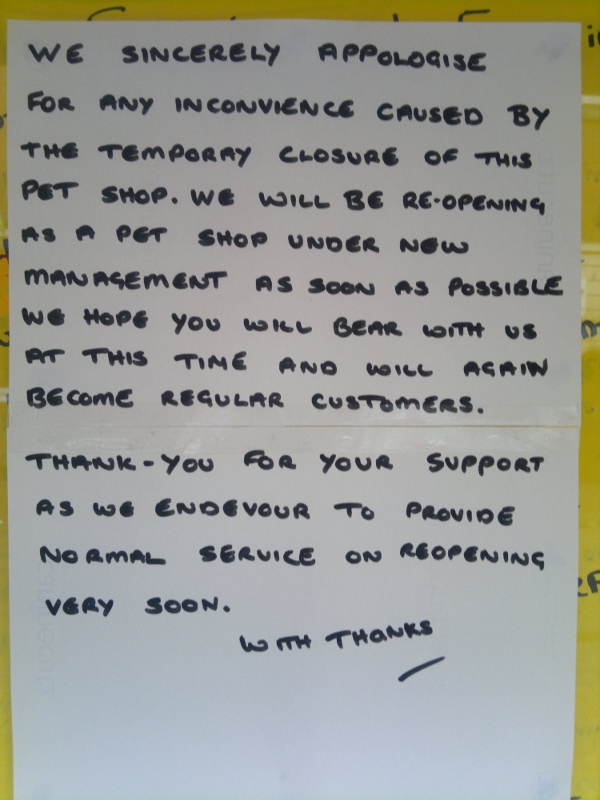 WE SINCERELY APPOLOGISE
FOR ANY INCONVIENCE CAUSED BY
THE TEMPORAY CLOSURE OF THIS
PET SHOP. WE WILL BE RE-OPENING
AS A PET SHOP UNDER NEW
MANAGEMENT AS SOON AS POSSIBLE
WE HOPE YOU WILL BEAR WITH US
AT THIS TIME AND WILL AGAIN
BECOME REGULAR CUSTOMERS.
THANK-YOU FOR YOUR SUPPORT
AS WE ENDEVOUR TO PROVIDE
NORMAL SERVICE ON REOPENING
VERY SOON.
WITH THANKS